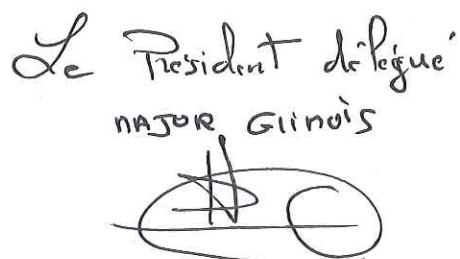 Le Président délégué
MAJOR GLINOIS